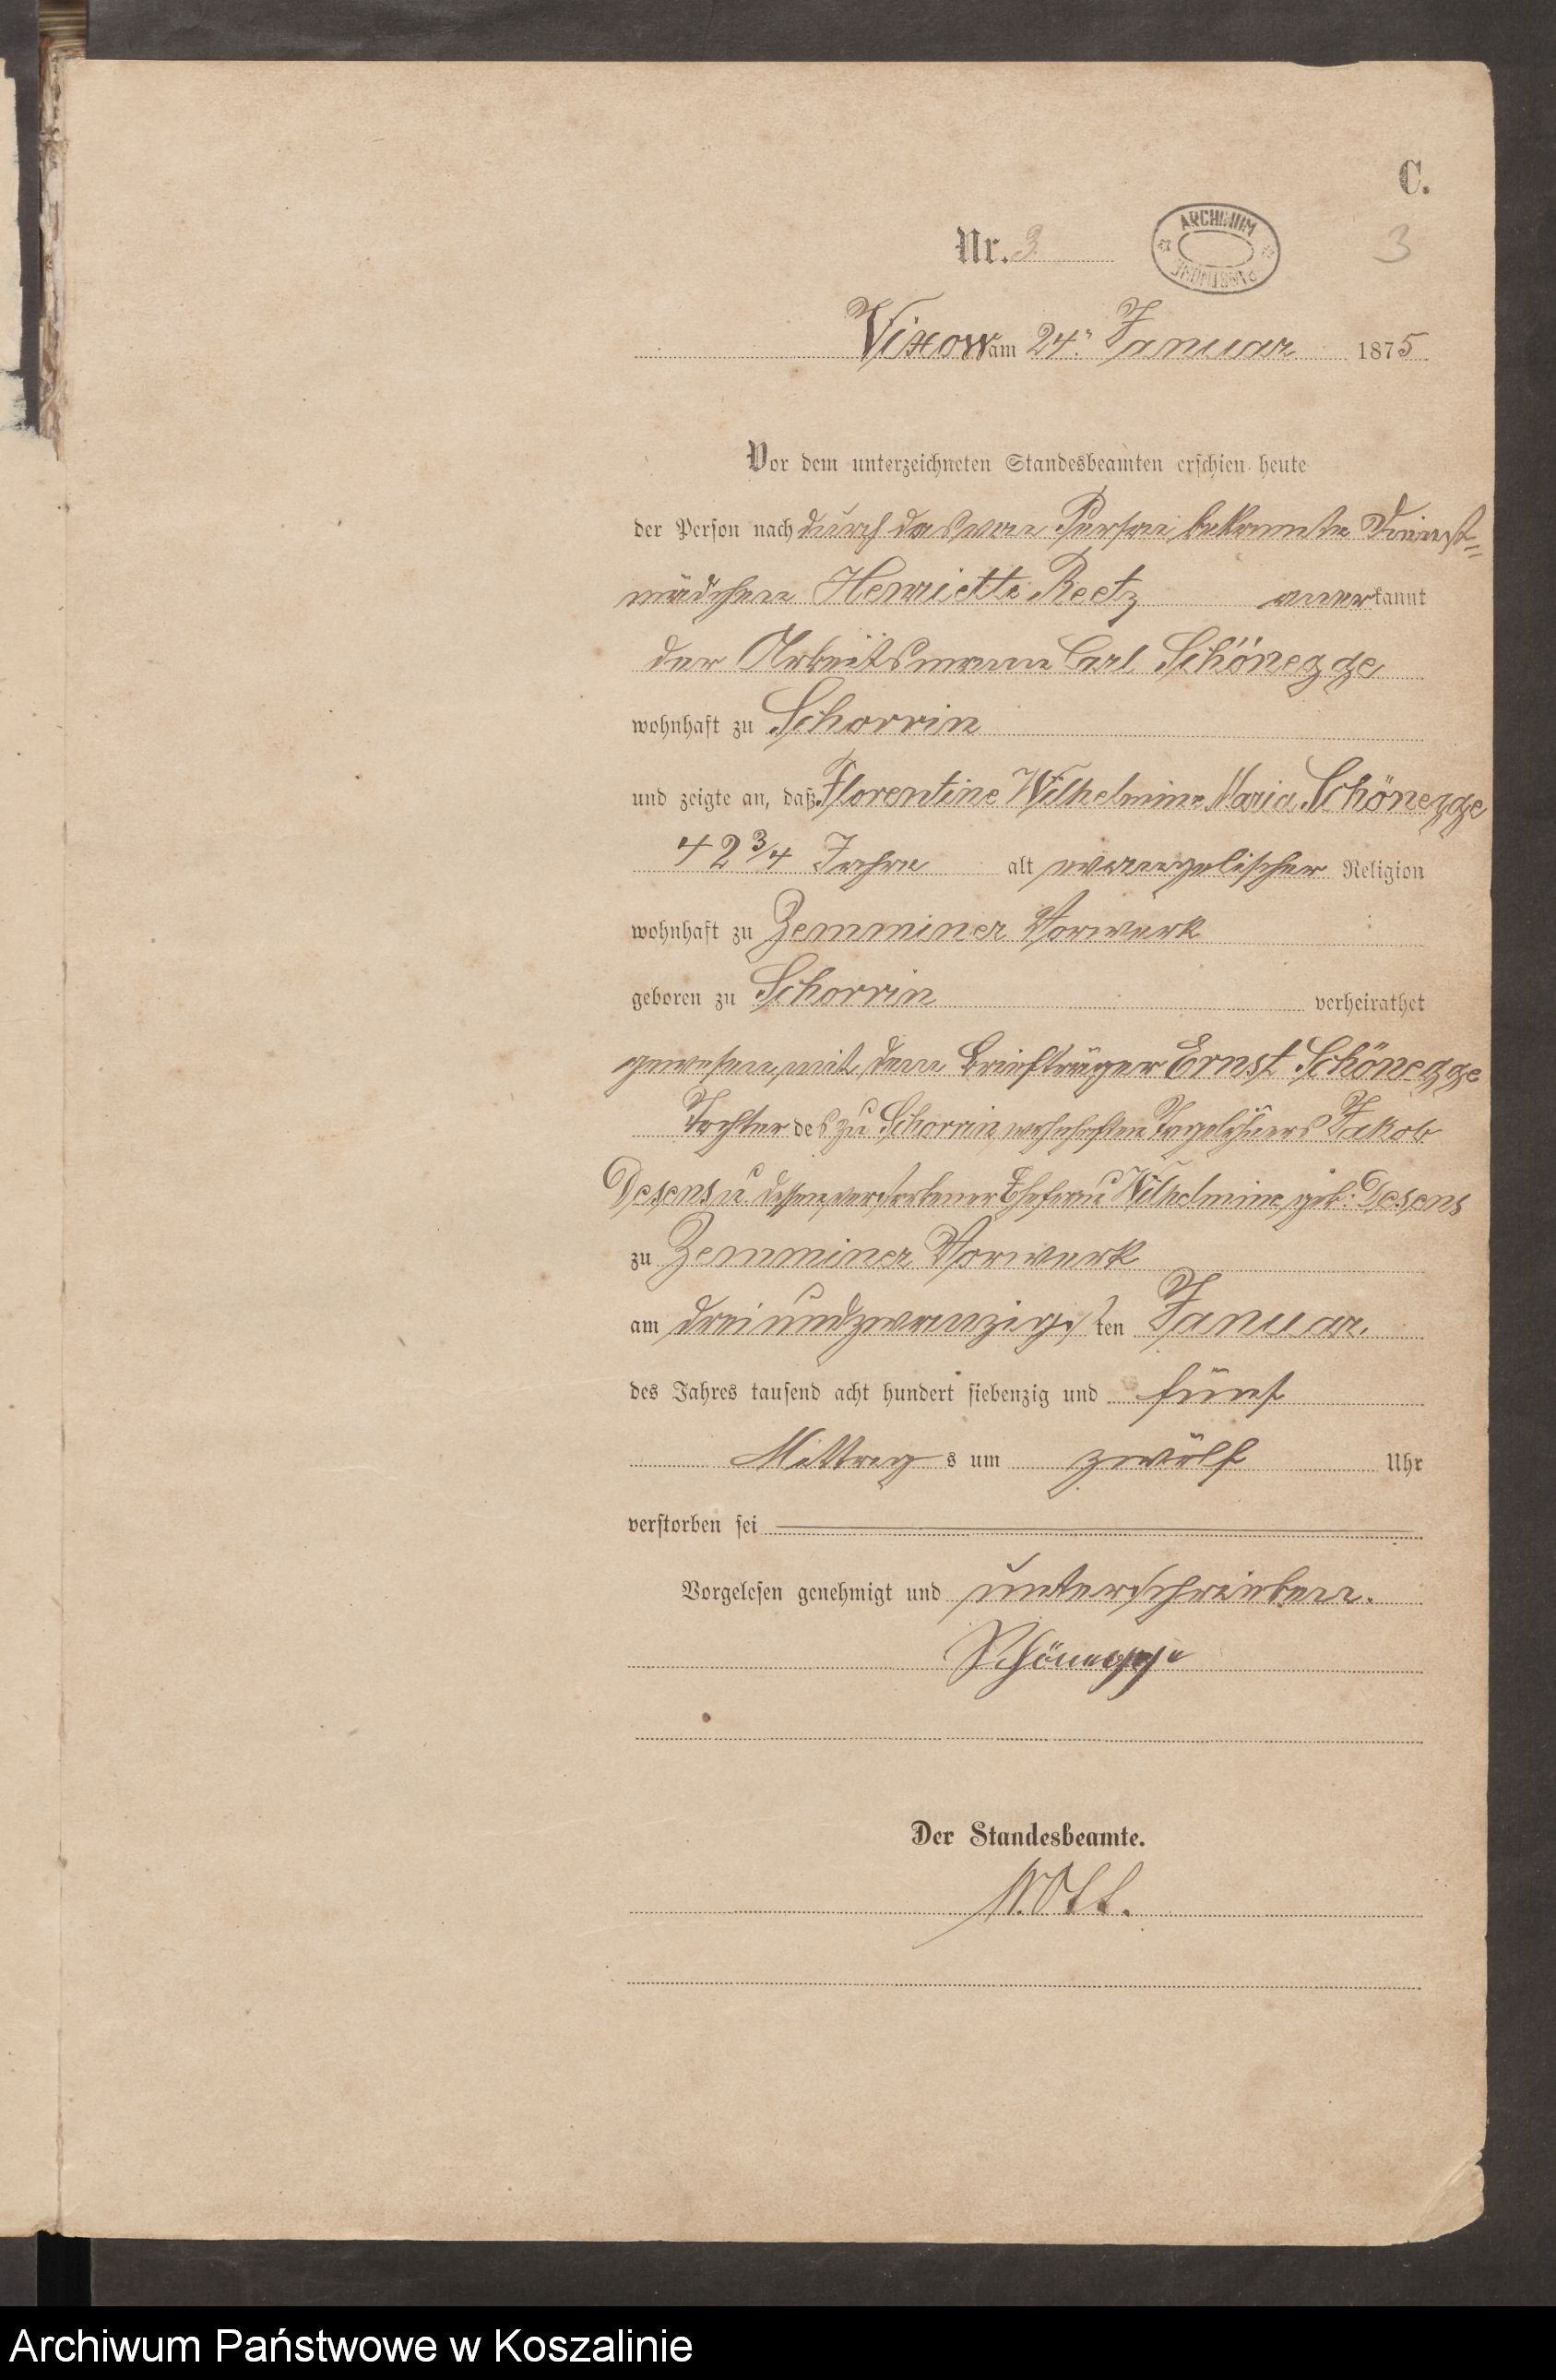 C.
Nr. 3
ARCHIWUM
3
Vixow am 24. Januar 1875
Vor dem unterzeichneten Standesbeamten erschien heute
der Person nach durch das von Person bekannte Dienst-
mädchen Henriette Reetz anerkannt
der Arbeitsmann Carl Schönegge
wohnhaft zu Schorrin
und zeigte an, daß Florentine Wilhelmine Maria Schönegge
42 3/4 Jahre alt evangelischer Religion
wohnhaft zu Zemminer Vorwerk
geboren zu Schorrin verheirathet
gewesen mit dem Briefträger Ernst Schönegge
Tochter des zu Schorrin wohnhaften Tagelöhners Jakob
Desens u. dessen verstorbener Ehefrau Wilhelmine geb. Desens
zu Zemminer Vorwerk
am dreiundzwanzigsten Januar
des Jahres tausend acht hundert siebenzig und fünf
Mittags um zwölf Uhr
verstorben sei
Vorgelesen genehmigt und unterschrieben.
Schönegge
Der Standesbeamte.
Archiwum Państwowe w Koszalinie